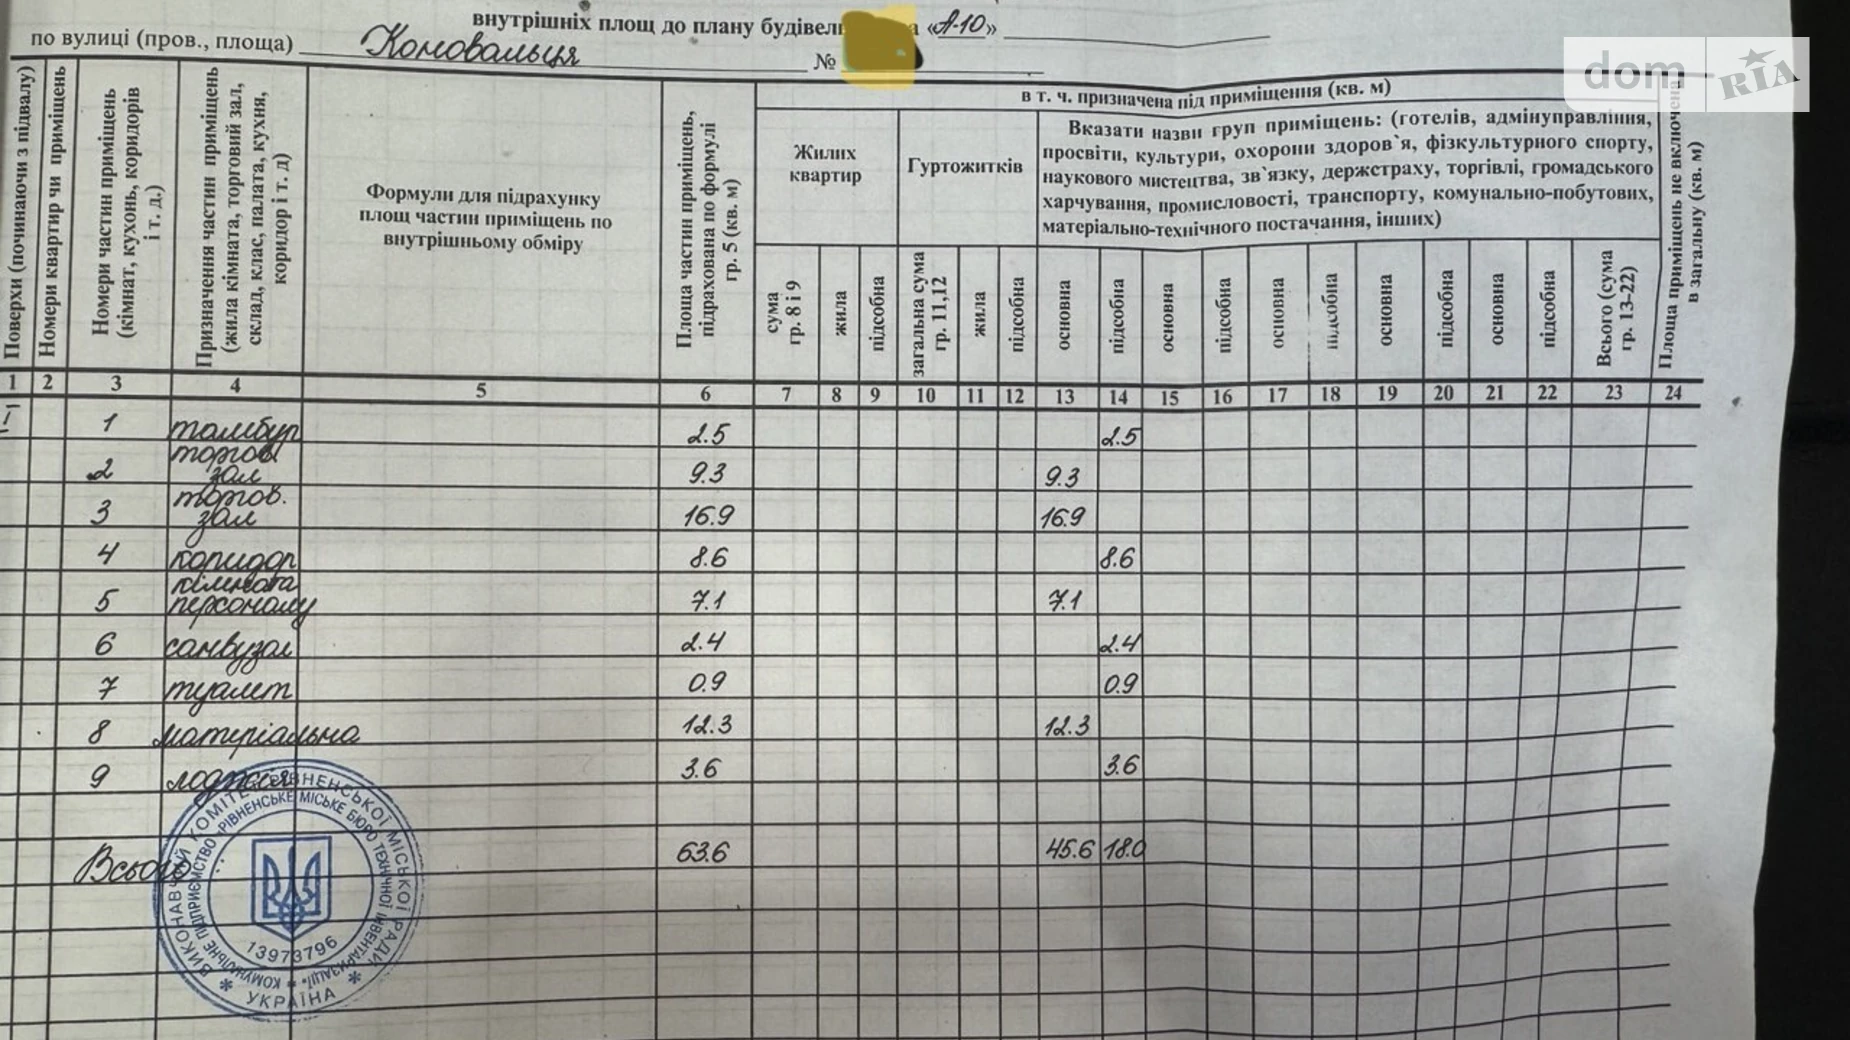 внутрішніх площ до плану будівель а «А-10»
по вулиці (пров., площа) Коновальця №
dom RIA
Поверхи (починаючи з підвалу)
Номери квартир чи приміщень
Номери частин приміщень (кімнат, кухонь, коридорів і т. д.)
Призначення частин приміщень (жила кімната, торговий зал, склад, клас, палата, кухня, коридор і т. д)
Формули для підрахунку
площ частин приміщень по
внутрішньому обміру
Площа частин приміщень, підрахована по формулі гр. 5 (кв. м)
в т. ч. призначена під приміщення (кв. м)
Жилих
квартир
Гуртожитків
Вказати назви груп приміщень: (готелів, адмінуправління,
просвіти, культури, охорони здоров`я, фізкультурного спорту,
наукового мистецтва, зв`язку, держстраху, торгівлі, громадського
харчування, промисловості, транспорту, комунально-побутових,
матеріально-технічного постачання, інших)
сума гр. 8 і 9
жила
підсобна
загальна сума гр. 11,12
жила
підсобна
основна
підсобна
основна
підсобна
основна
підсобна
основна
підсобна
основна
підсобна
Всього (сума гр. 13-22)
Площа приміщень не включена в загальну (кв. м)
1 2 3 4 5 6 7 8 9 10 11 12 13 14 15 16 17 18 19 20 21 22 23 24
I 1 тамбур 2.5 2.5
2 торгов. зал 9.3 9.3
3 торгов. зал 16.9 16.9
4 коридор 8.6 8.6
5 кімната персоналу 7.1 7.1
6 санвузол 2.4 2.4
7 туалет 0.9 0.9
8 матеріальна 12.3 12.3
9 лоджія 3.6 3.6
Всього 63.6 45.6 18.0
ВИКОНАВЧИЙ КОМІТЕТ РІВНЕНСЬКОЇ МІСЬКОЇ РАДИ
КОМУНАЛЬНЕ ПІДПРИЄМСТВО «РІВНЕНСЬКЕ МІСЬКЕ БЮРО ТЕХНІЧНОЇ ІНВЕНТАРИЗАЦІЇ»
13973796
* УКРАЇНА *